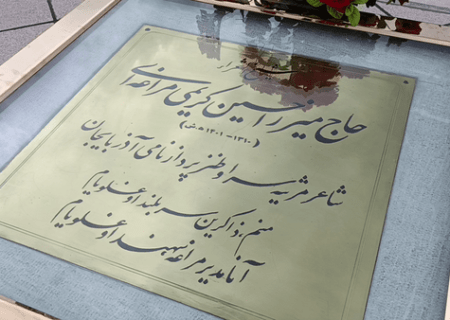 مزار
حاج میرزا حسین کریمی مراغه ای
(۱۳۱۰-۱۴۰۱ ه.ش)
شاعر مرثیه سرا و طنز پرداز نامی آذربایجان
منم: ذاکرین سربلند اوغلویام
آنام دیر مراغه سهند اوغلویام